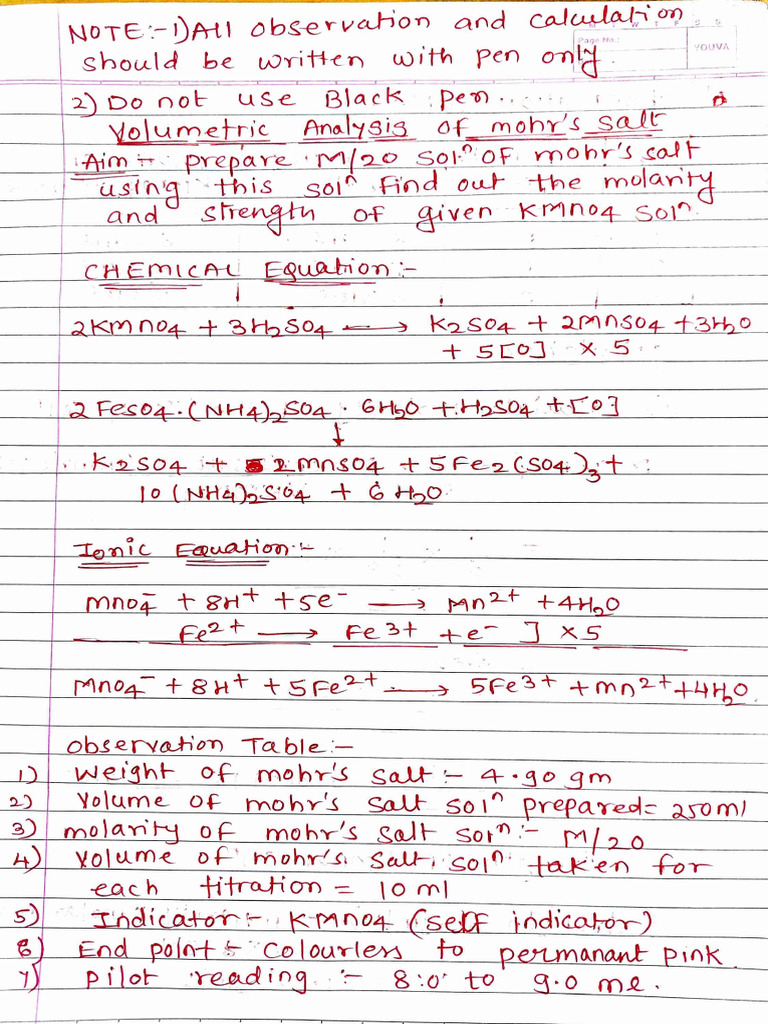 NOTE:-1)All observation and calculation
Page No.:
YOUVA
should be written with pen only.
2) Do not use Black pen.
Volumetric Analysis of mohr's salt
Aim :- prepare M/20 solⁿ of mohr's salt
using this solⁿ find out the molarity
and strength of given KMnO4 solⁿ.
CHEMICAL Equation:-
2KMnO4 + 3H2SO4 ⟶ K2SO4 + 2MnSO4 + 3H2O
+ 5[O] × 5
2FeSO4·(NH4)2SO4 · 6H2O + H2SO4 + [O]
↓
K2SO4 + 2MnSO4 + 5Fe2(SO4)3 +
10(NH4)2SO4 + 6H2O
Ionic Equation:-
MnO4⁻ + 8H⁺ + 5e⁻ ⟶ Mn2+ + 4H2O
Fe2+ ⟶ Fe3+ + e⁻ ] ×5
MnO4⁻ + 8H⁺ + 5Fe2+ ⟶ 5Fe3+ + mn2+ + 4H2O
Observation Table:-
1) Weight of mohr's salt:- 4.90 gm
2) Volume of mohr's salt solⁿ prepared = 250ml
3) molarity of mohr's salt solⁿ:- M/20
4) Volume of mohr's salt solⁿ taken for
each titration = 10 ml
5) Indicator:- KMnO4 (self indicator)
6) End point:- colourless to permanant pink
7) pilot reading :- 8.0 to 9.0 ml.